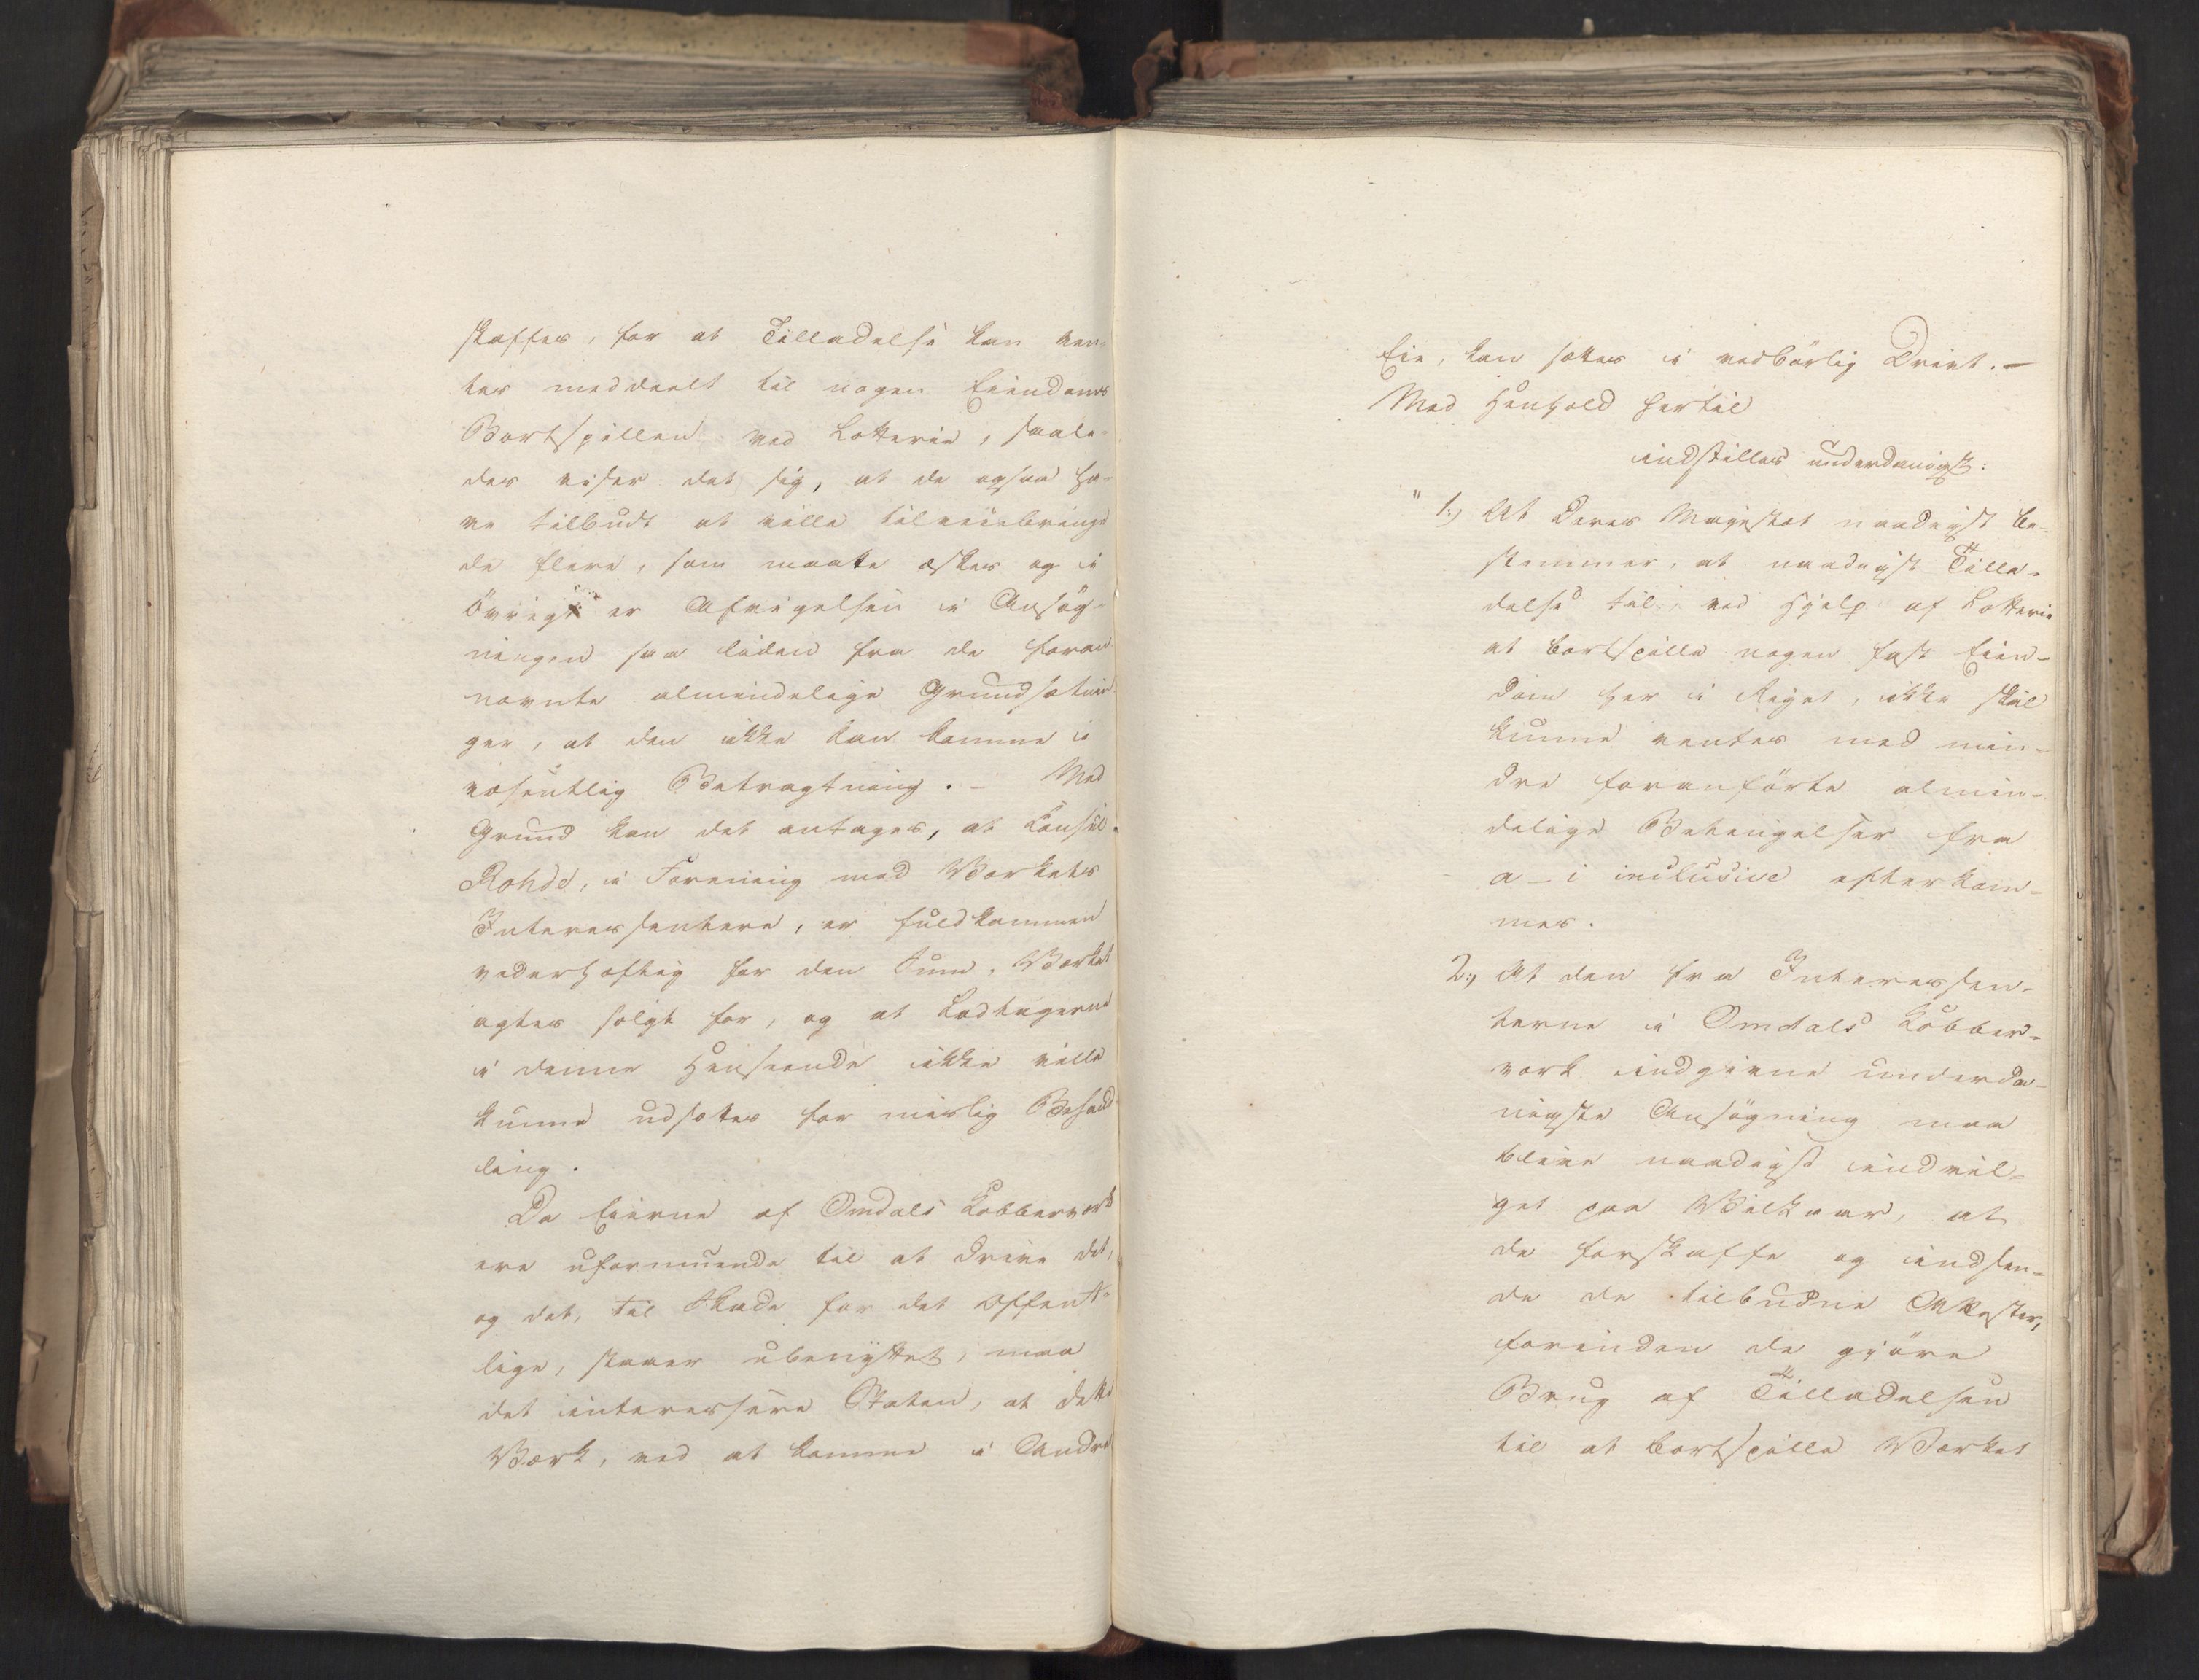 skaffes, for at Tilladelse kan ven-
tes meddeelt til nogen Eiendoms
Bortspillen ved Lotterie, saale-
des viser det sig, at de ogsaa ha-
ve tilbudt at ville tilveiebringe
de flere, som maatte æskes og i
Övrigt er Afvigelsen i Ansøg-
ningen saa liden fra de foran-
nævnte almindelige Grundsætnin
ger, at den ikke kan komme i
væsentlig Betragtning. - Med
Grund kan det antages, at Consul
Rohde, i Forening med Værkets
Interessentere, er fuldkommen
vederhæftig for den Sum, Værket
agtes solgt for, og at Lodtagerne
i denne Henseende ikke ville
kunne udsættes for mislig Behand
ling.
Da Eierne af Omdals Kobberværk
ere uformuende til at drive det,
og det, til Skade for det Offent-
lige, staaer ubenyttet, maa
det interessere Staten, at dette
Værk, ved at komme i Andres
Eie, kan sættes i vedbörlig Drivt. -
Med Henhold hertil
indstilles underdanigst:
" 1.) At Deres Majestæt naadigst be-
stemmer, at naadigst Tilla-
delse til, ved Hjelp af Lotterie
at bortspille nogen fast Eien-
dom her i Riget, ikke skal
kunne ventes med min-
dre foranförte almin-
delige Betingelser fra
a - i inclusive efterkom-
mes.
2.) At den fra Interessen-
terne i Omdals Kobber-
værk indgivne underda-
nigste Ansögning maa
blive naadigst indvil-
get paa Vilkaar, at
de forskaffe og indsen-
de de tilbudne Attester,
forinden de gjöre
Brug af Tilladelsen
til at bortspille Værket